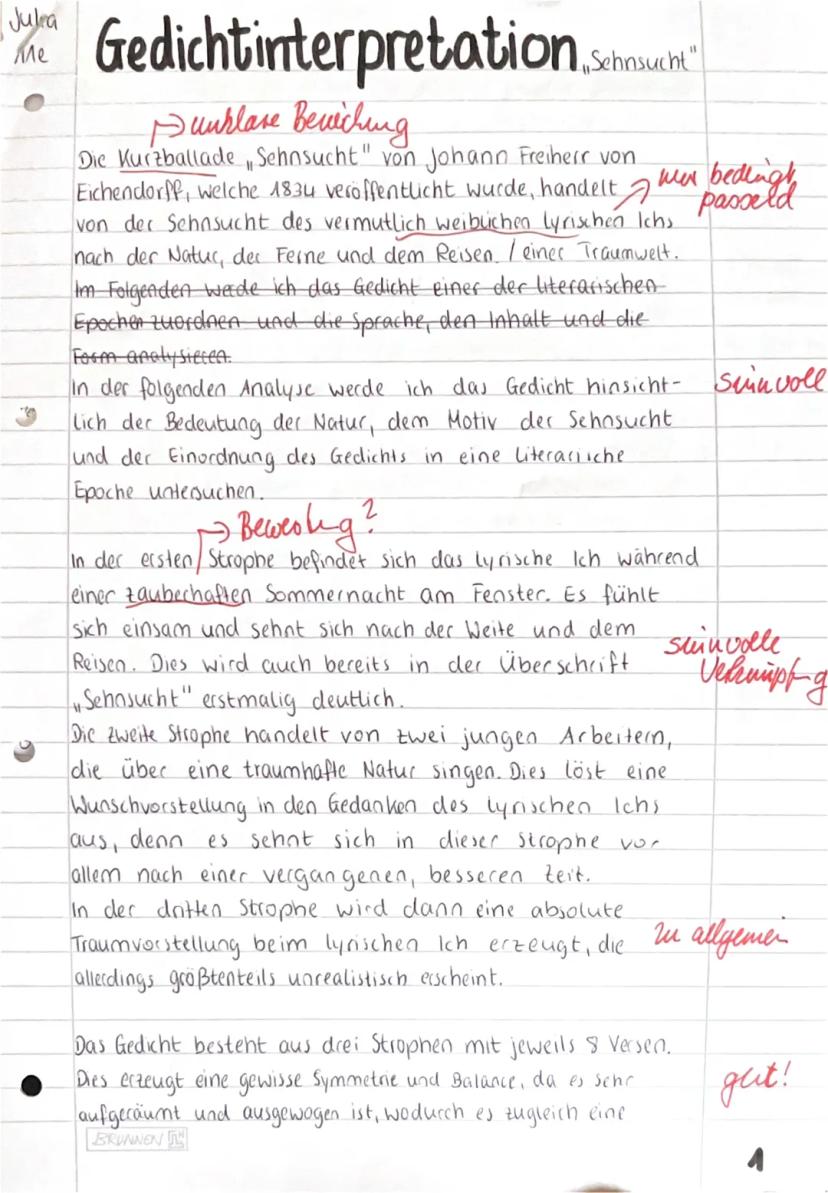 Julia
Me
Gedichtinterpretation „Sehnsucht"
→ unklare Bezeichnung
Die Kurzballade „Sehnsucht" von Johann Freiherr von
Eichendorff, welche 1834 veröffentlicht wurde, handelt
→ nur bedingt
passend
von der Sehnsucht des vermutlich weiblichen lyrischen Ichs
nach der Natur, der Ferne und dem Reisen. / einer Traumwelt.
Im Folgenden werde ich das Gedicht einer der literarischen
Epochen zuordnen und die Sprache, den Inhalt und die
Form analysieren.
In der folgenden Analyse werde ich das Gedicht hinsicht-
sinnvoll
lich der Bedeutung der Natur, dem Motiv der Sehnsucht
und der Einordnung des Gedichts in eine literarische
Epoche untersuchen.
→ Bewertung?
In der ersten Strophe befindet sich das lyrische Ich während
einer zauberhaften Sommernacht am Fenster. Es fühlt
sich einsam und sehnt sich nach der Weite und dem
sinnvolle
Verknüpfung
Reisen. Dies wird auch bereits in der Überschrift
„Sehnsucht" erstmalig deutlich.
Die zweite Strophe handelt von zwei jungen Arbeitern,
die über eine traumhafte Natur singen. Dies löst eine
Wunschvorstellung in den Gedanken des lyrischen Ichs
aus, denn es sehnt sich in dieser Strophe vor
allem nach einer vergangenen, besseren Zeit.
In der dritten Strophe wird dann eine absolute
Traumvorstellung beim lyrischen Ich erzeugt, die
zu allgemein
allerdings größtenteils unrealistisch erscheint.
Das Gedicht besteht aus drei Strophen mit jeweils 8 Versen.
Dies erzeugt eine gewisse Symmetrie und Balance, da es sehr
gut!
aufgeräumt und ausgewogen ist, wodurch es zugleich eine
BRUNNEN
1